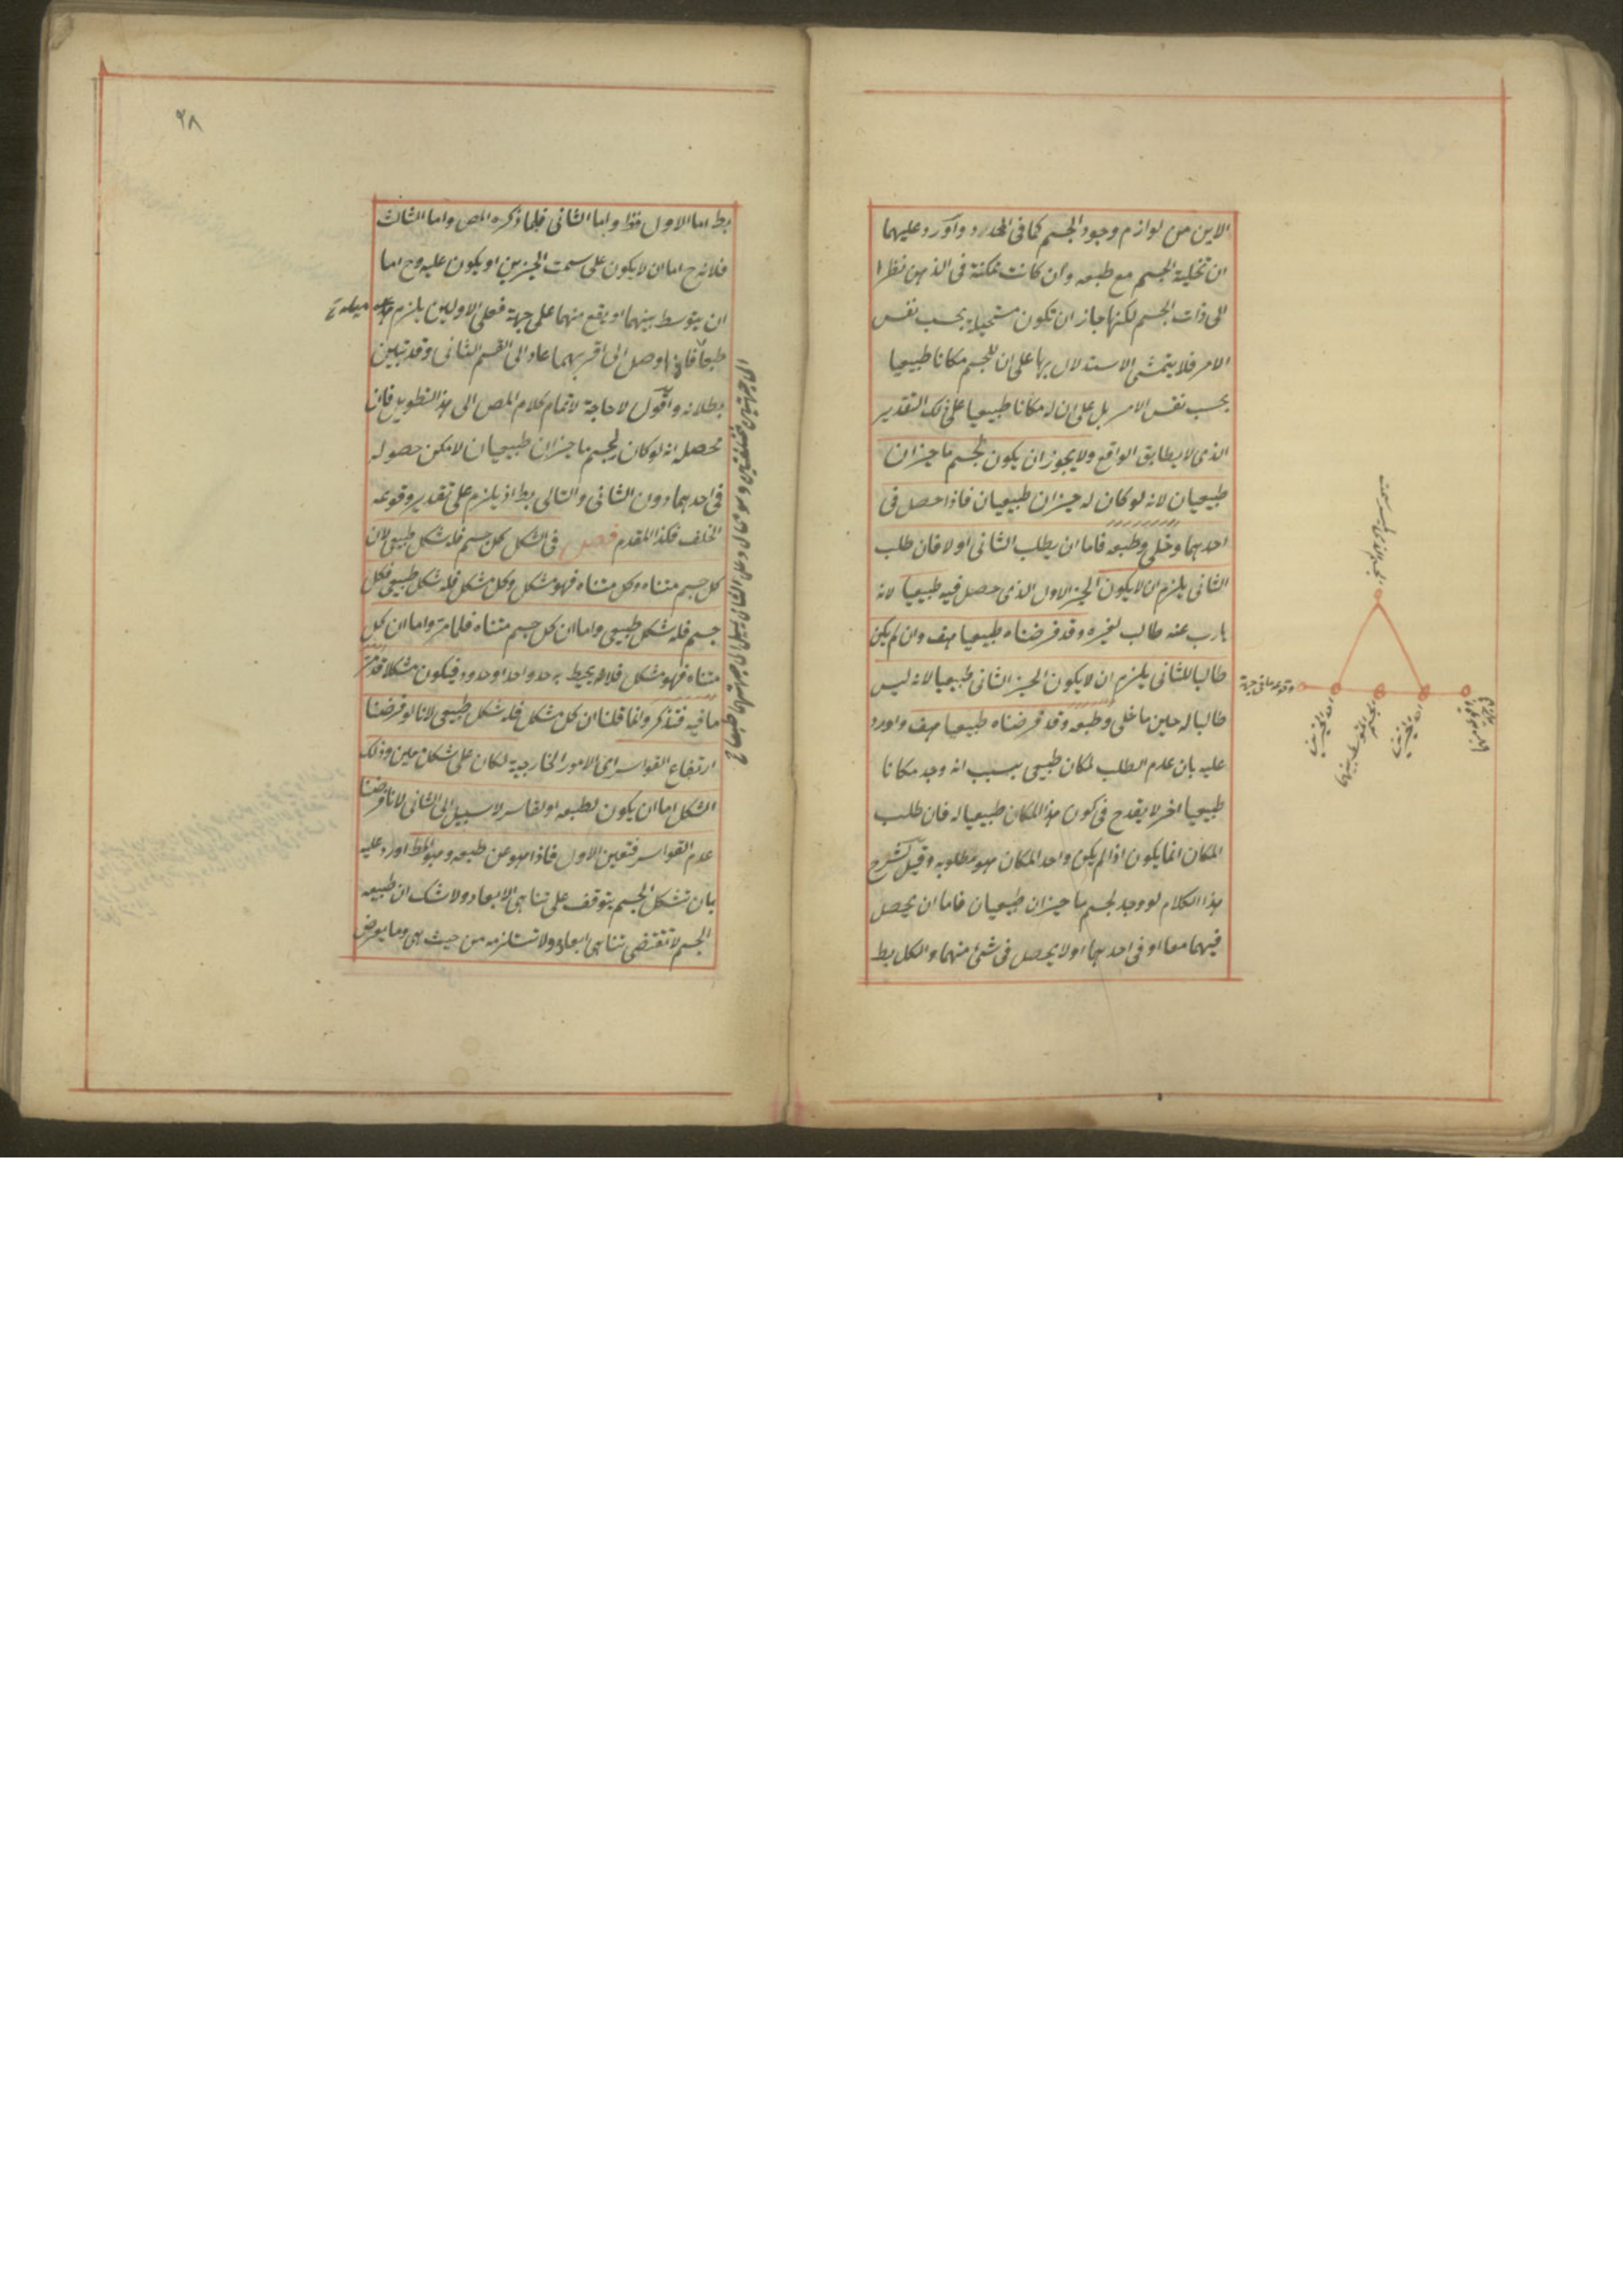 الاين من لوازم وجود الجسم كما فى المحدد واورد عليهما
ان تخلية الجسم مع طبعه وان كانت ممكنة فى الذهن نظرا
الى ذات الجسم لكنها جاز ان تكون مستحيلة بحسب نفس
الامر فلا يتمشى الاستدلال بها على ان للجسم مكانا طبيعيا
بحسب نفس الامر بل على ان له مكانا طبيعيا على ذلك التقدير
الذى لا يطابق الواقع ولا يجوز ان يكون لجسم ما حيزان
طبيعيان لانه لو كان له حيزان طبيعيان فاذا حصل فى
احدهما وخلى وطبعه فاما ان يطلب الثانى او لا فان طلب
الثانى يلزم ان لا يكون الحيز الاول الذى حصل فيه طبيعيا لانه
هارب عنه طالب لغيره وقد فرضناه طبيعيا هف وان لم يكن
طالبا للثانى يلزم ان لا يكون الحيز الثانى طبيعيا لانه ليس
طالبا له حين ما خلى وطبعه وقد فرضناه طبيعيا هف واورد
عليه بان عدم الطلب لمكان طبيعى بسبب انه وجد مكانا
طبيعيا اخر لا يقدح فى كون هذا المكان طبيعيا له فان طلب
المكان انما يكون اذا لم يكن واجد المكان هو مطلوبه وقيل لشرح
هذا الكلام لو وجد لجسم ما حيزان طبيعيان فاما ان يحصل
فيهما معا او فى احدهما او لا يحصل فى شئ منهما والكل بط
وقوعه على جهة
احد الحيزين
الجسم المتوسط بينهما
احد الحيزين
٢٨
بط اما الاول فظ واما الثانى فلما ذكره المص واما الثالث
فلانه ح اما ان لا يكون على سمت الحيزين او يكون عليه وح اما
ان يتوسط بينهما او يقع منهما على جهة فعلى الاولين يلزم ميله
طبعا فاذا وصل الى اقربهما عاد الى القسم الثانى وقد تبين
بطلانه واقول لا حاجة لاتمام كلام المص الى هذا التطويل فان
محصله انه لو كان لجسم ما حيزان طبيعيان لامكن حصوله
فى احدهما دون الثانى والتالى بط اذ يلزم على تقدير وقوعه
الخلف فكذا المقدم فصل فى الشكل كل جسم فله شكل طبيعى لان
كل جسم متناه وكل متناه فهو مشكل وكل مشكل فله شكل طبيعى فكل
جسم فله شكل طبيعى واما ان كل جسم متناه فلما مر واما ان كل
متناه فهو مشكل فلانه يحيط به حد واحد او حدود فيكون مشكلا قد مر
ما فيه فتذكر وانما قلنا ان كل مشكل فله شكل طبيعى لانا لو فرضنا
ارتفاع القواسر اى الامور الخارجية لكان على شكل معين وذلك
الشكل اما ان يكون لطبعه او لقاسر لا سبيل الى الثانى لانا فرضنا
عدم القواسر فتعين الاول فاذا هو عن طبعه وهو المط اورد عليه
بان تشكل الجسم يتوقف على تناهى الابعاد ولا شك ان طبيعة
الجسم لا تقتضى تناهى ابعاده ولا تستلزمه من حيث هى وما يعرض